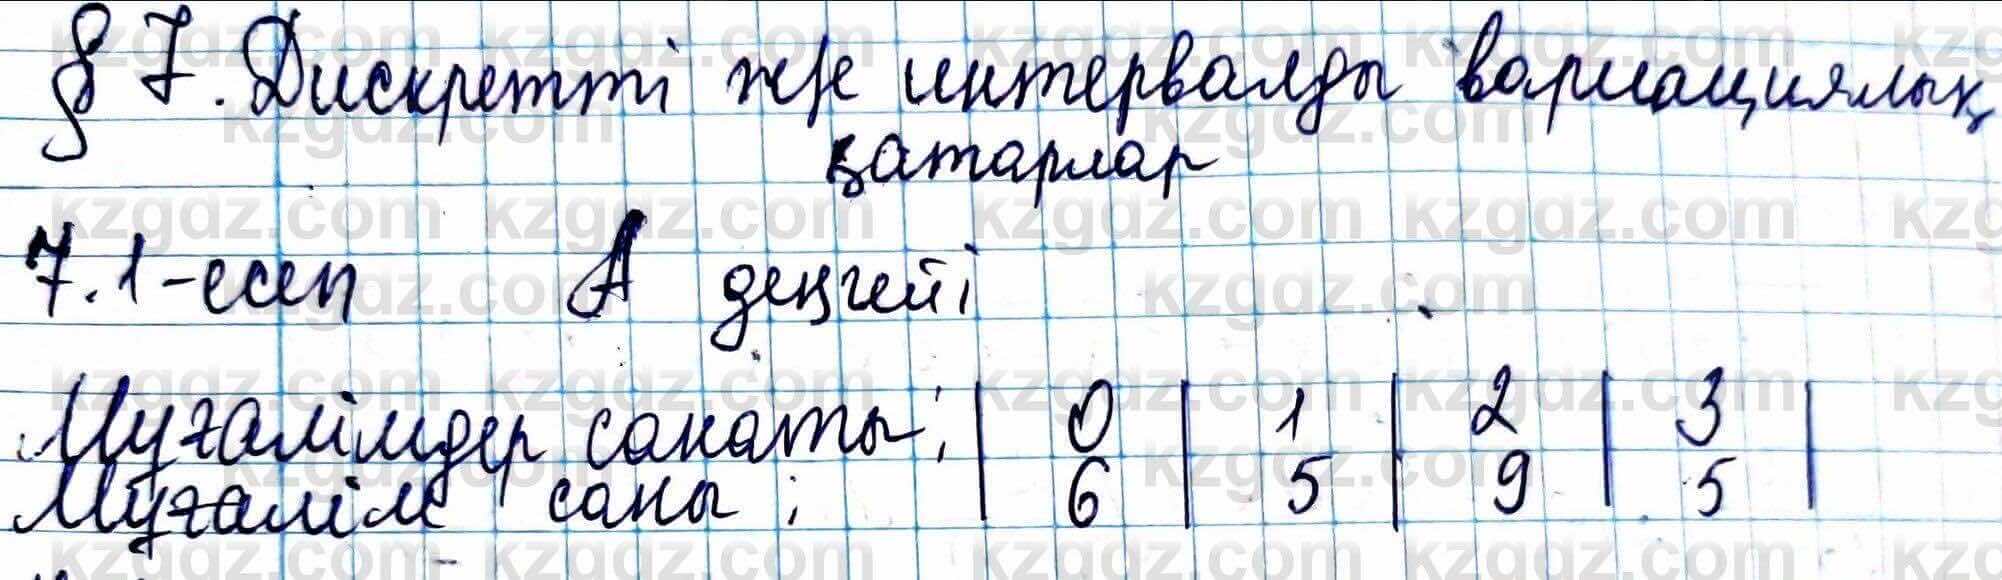 § 7. Дискретті және интервалды вариациялық
қатарлар
7.1-есеп А деңгейі
Мұғалімдер санаты: | 0 | 1 | 2 | 3 |
Мұғалім саны: | 6 | 5 | 9 | 5 |